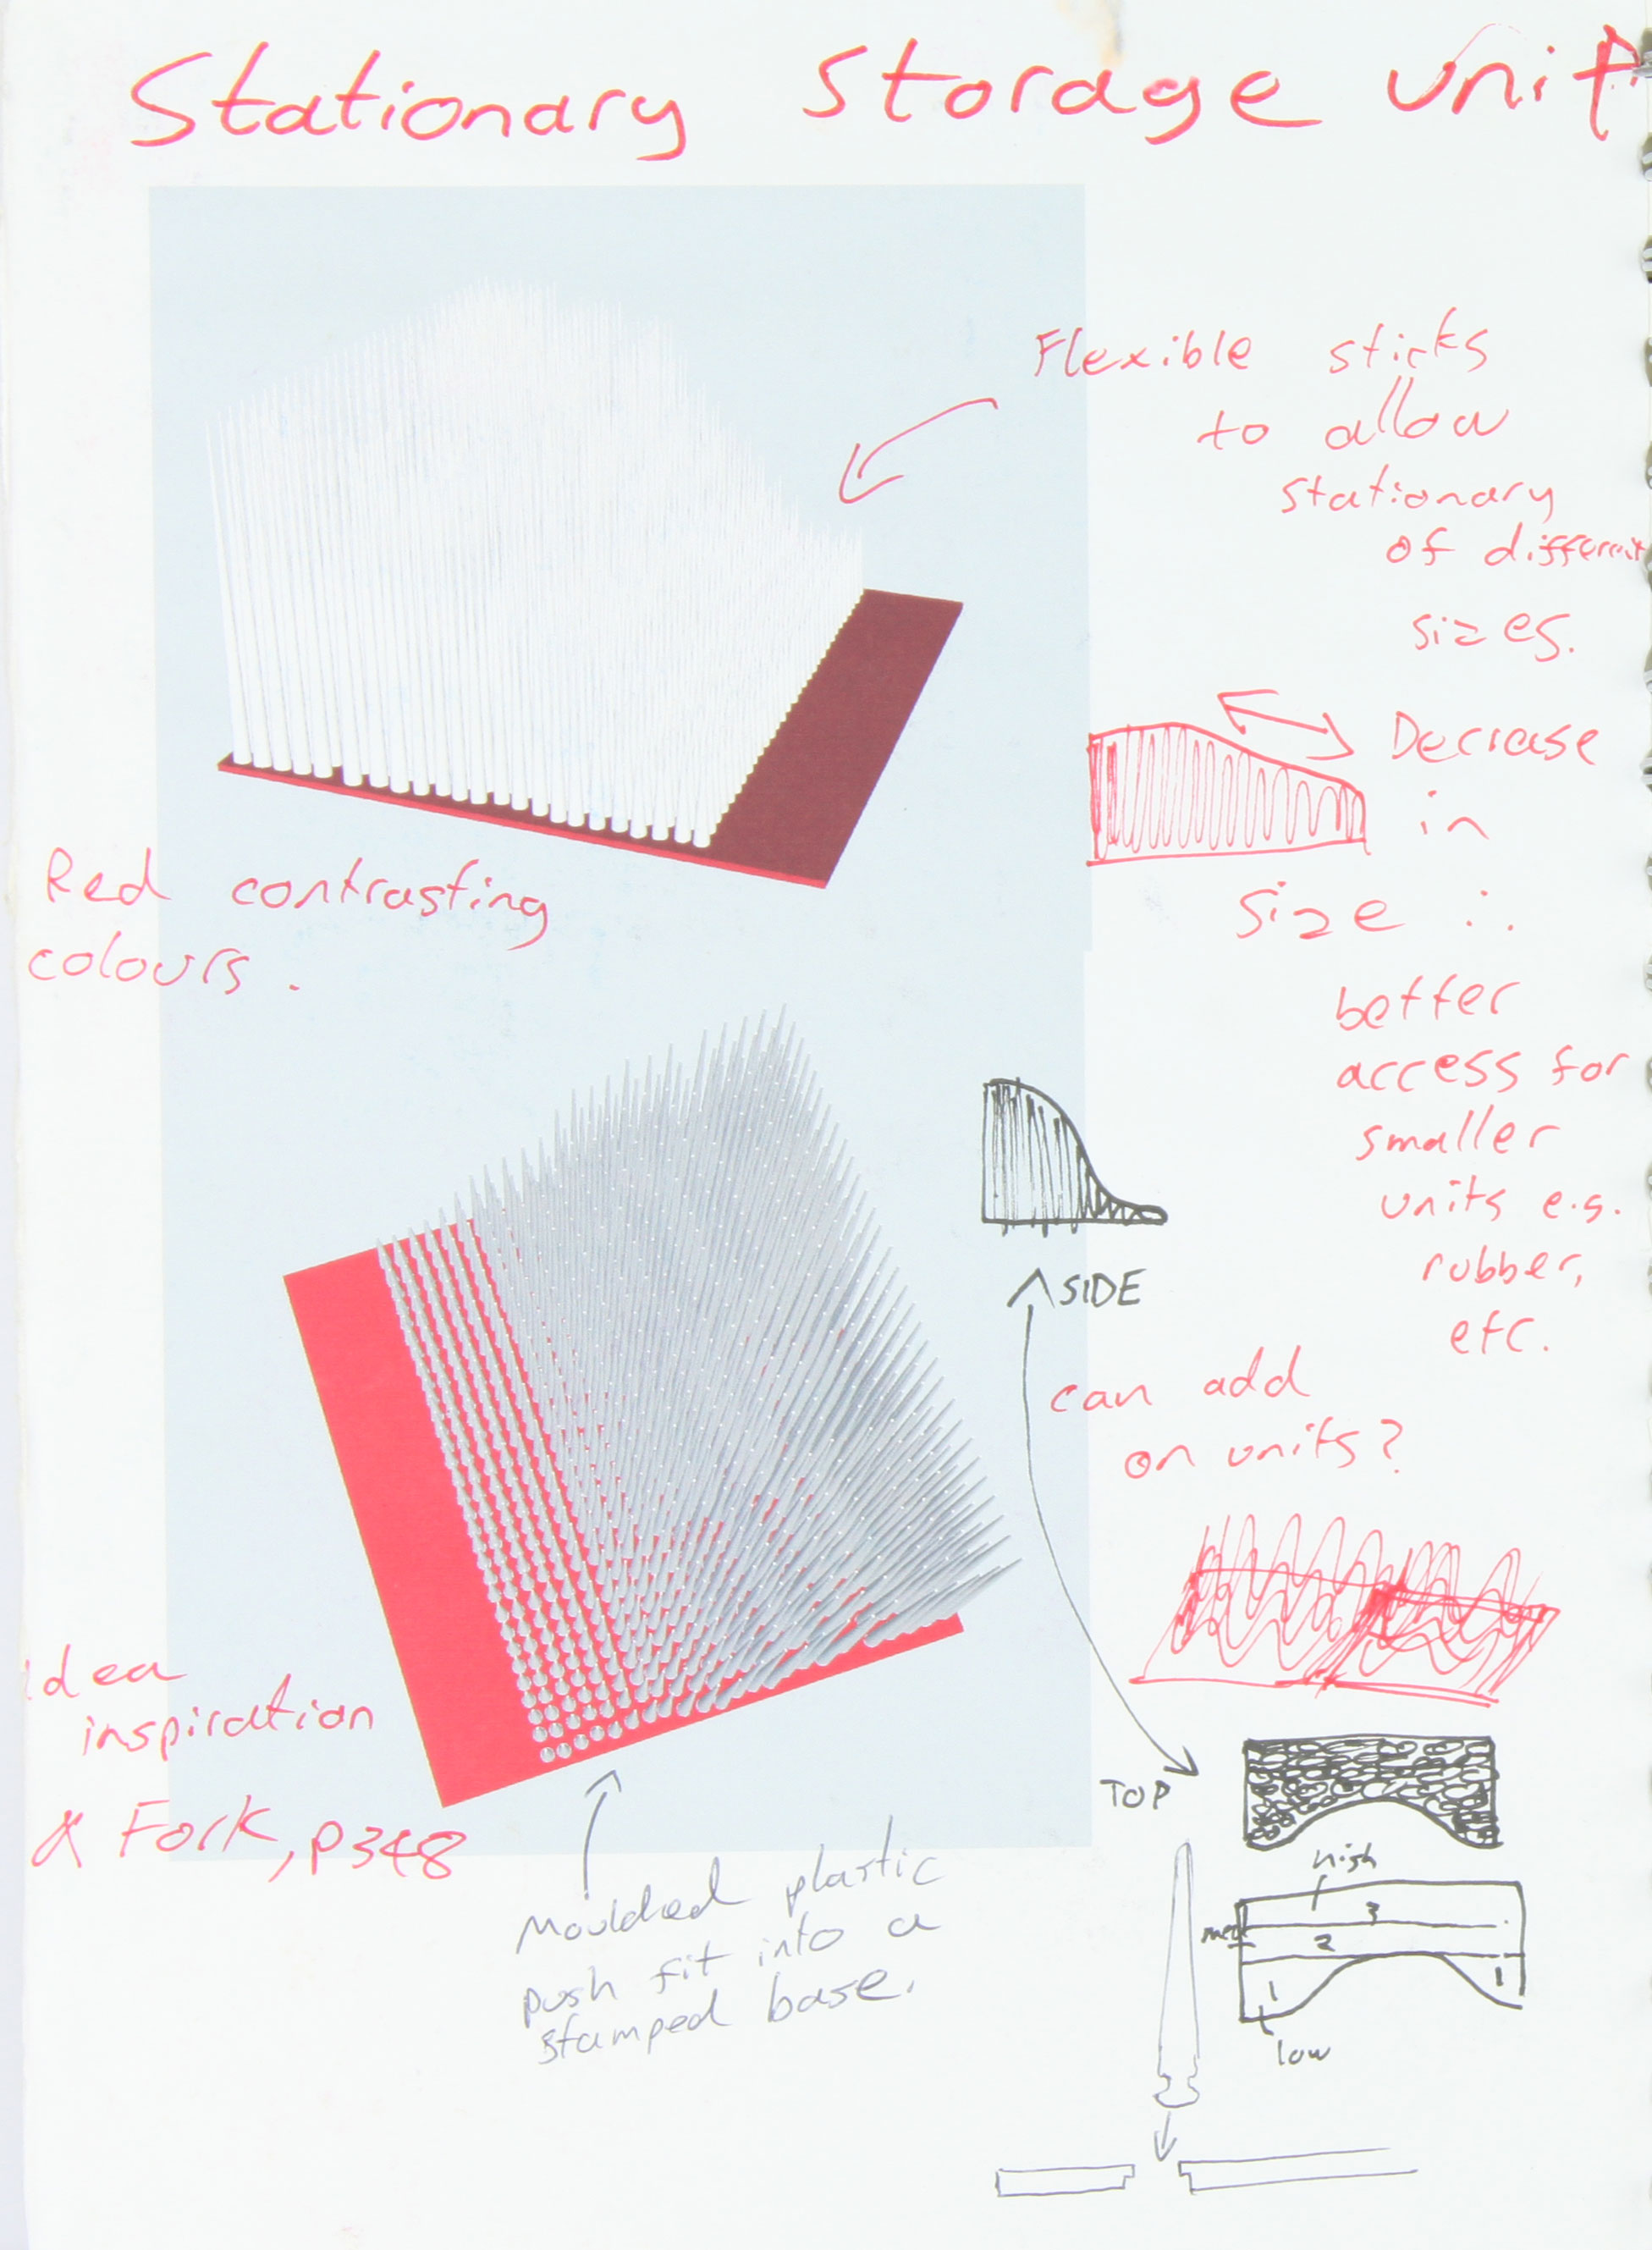 Stationary Storage unit.
Flexible sticks
to allow
stationary
of different
sizes.
Decrase
in
size ∴
better
access for
smaller
units e.g.
rubber,
etc.
Red contrasting
colours.
SIDE
can add
on units?
Idea
inspiration
& Fork, p348
TOP
Moulded plastic
push fit into a
stamped base.
high
3
med
2
1
1
low